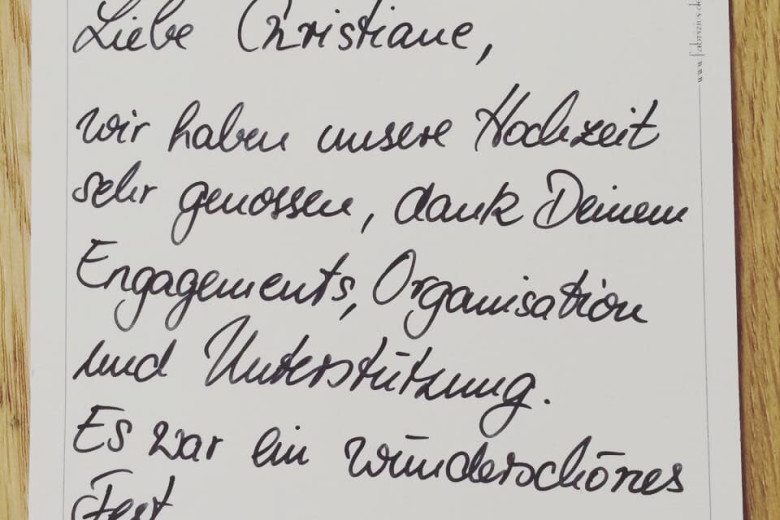 Liebe Christiane,
wir haben unsere Hochzeit
sehr genossen, dank Deinem
Engagements, Organisation
und Unterstützung.
Es war ein wunderschönes
Fest